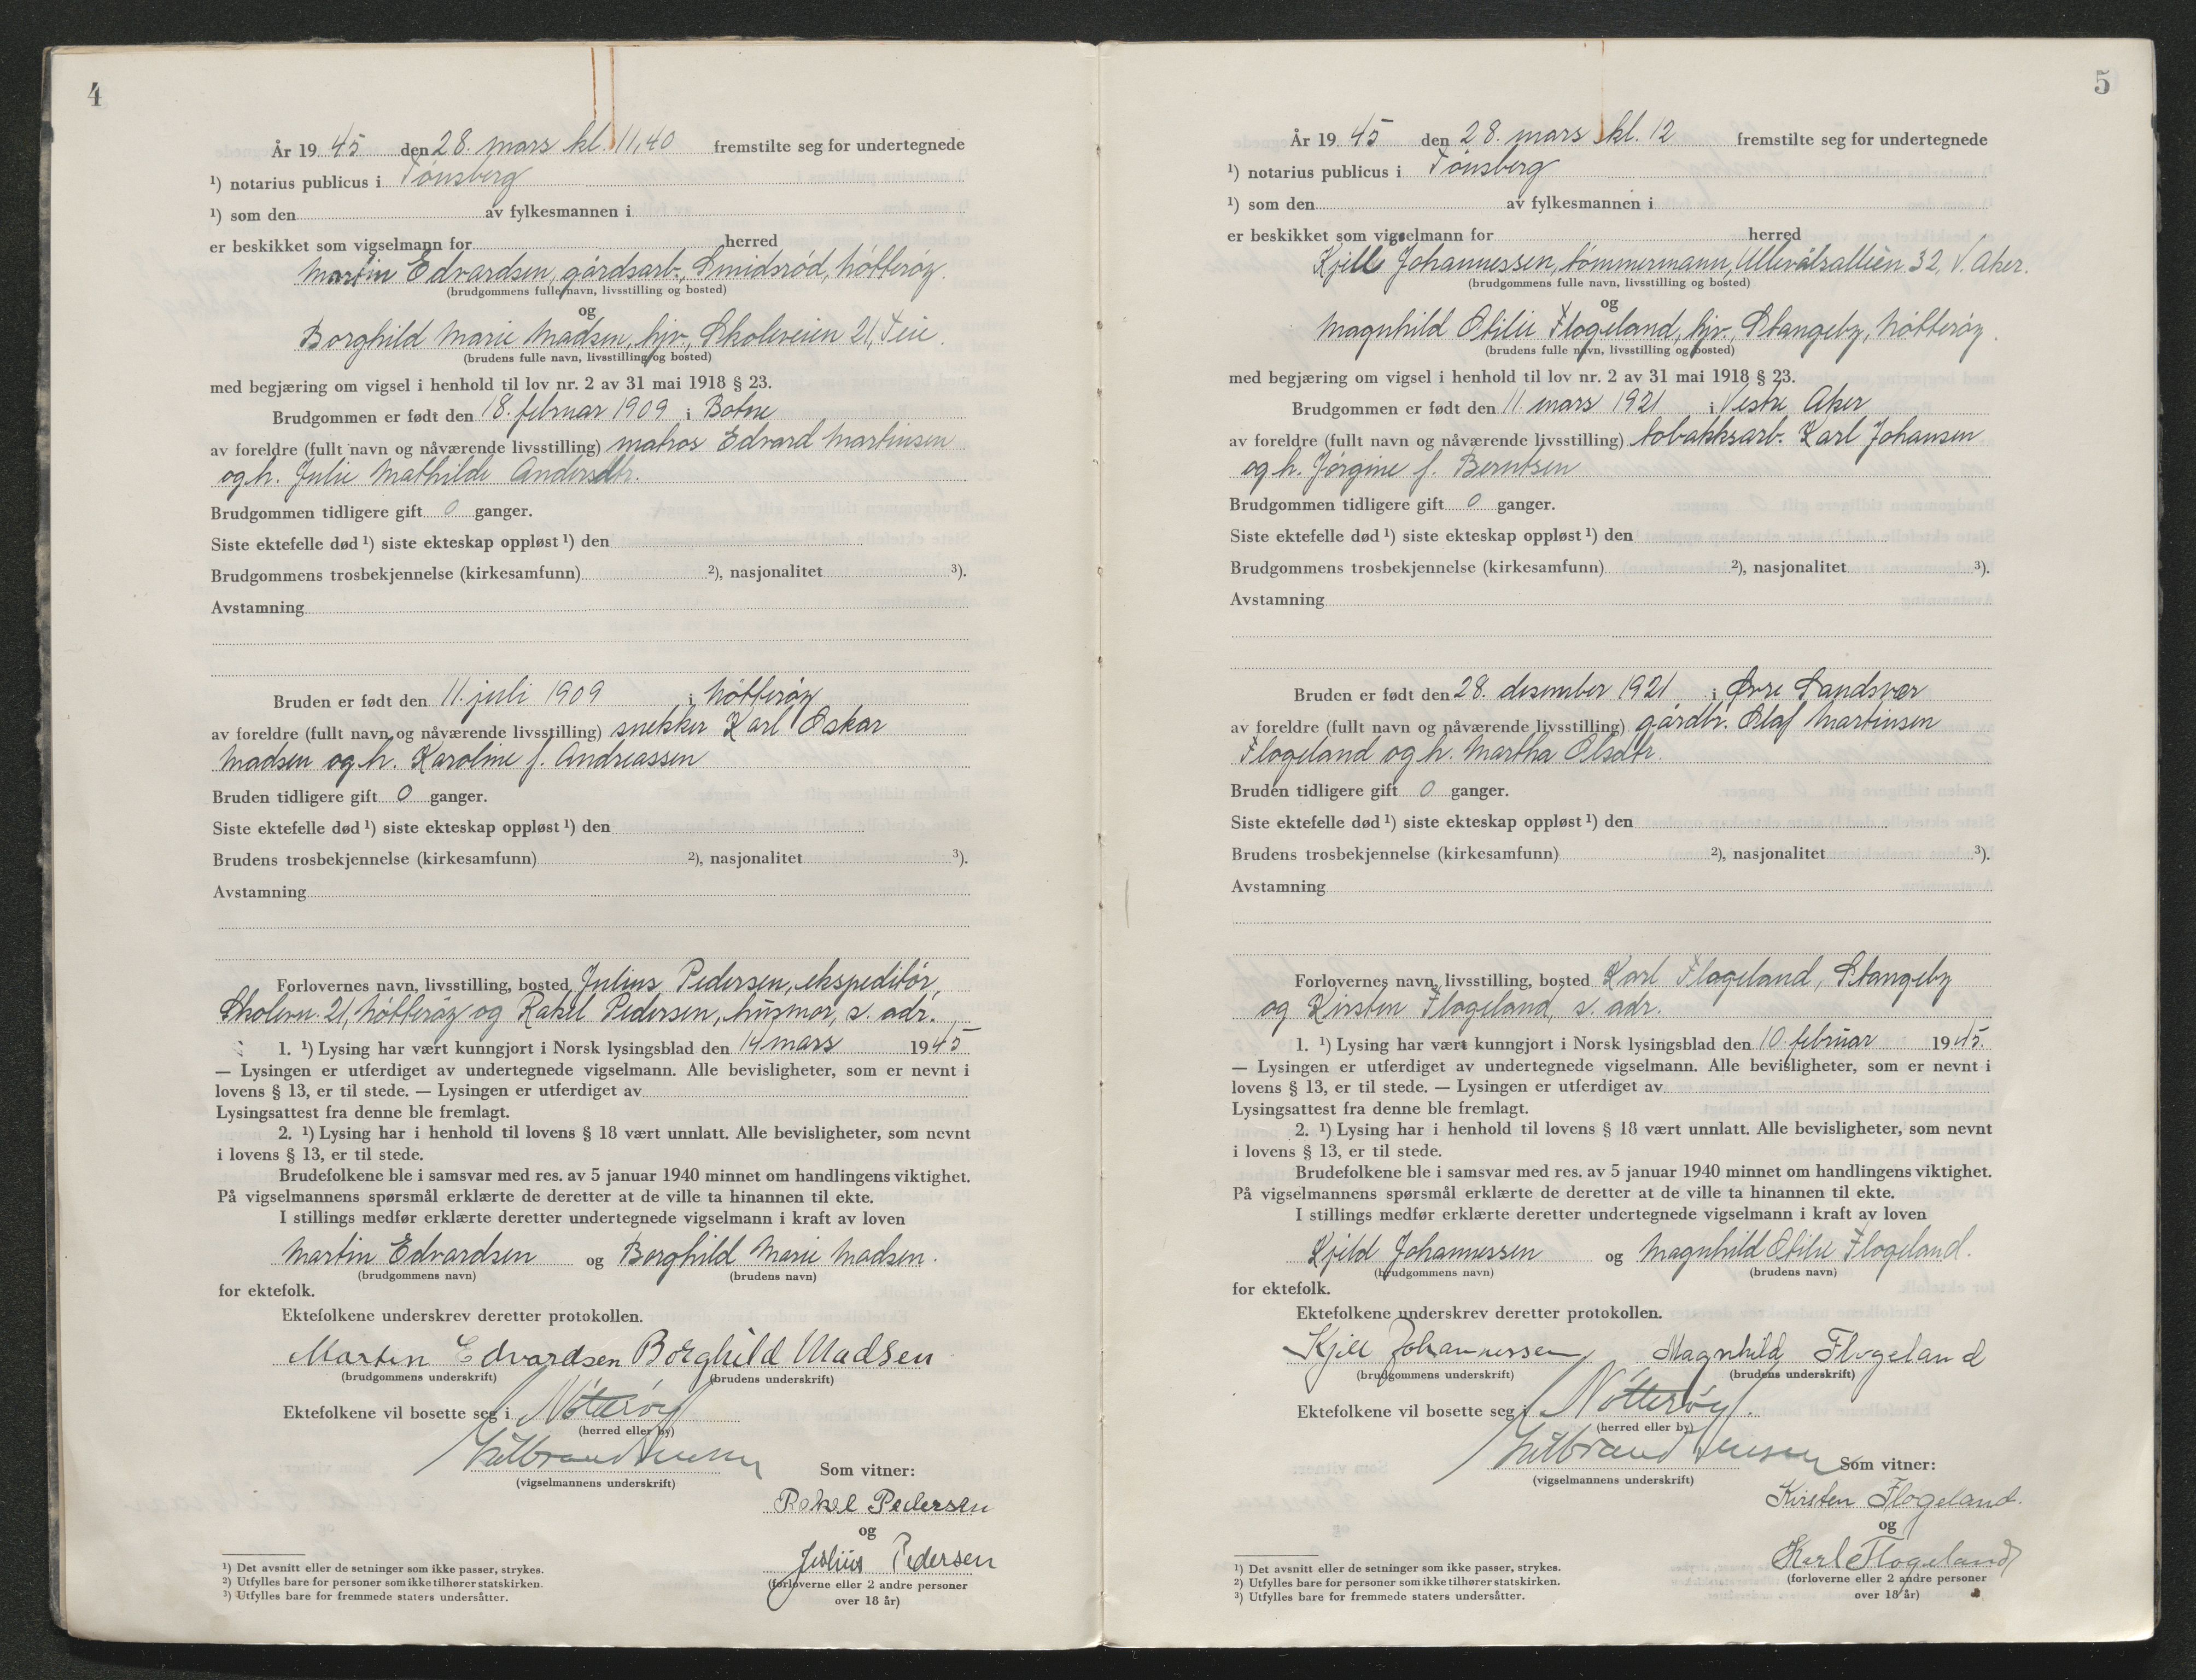 4
År 19 45 den 28. mars kl. 11,40 fremstilte seg for undertegnede
¹) notarius publicus i Tønsberg
¹) som den av fylkesmannen i
er beskikket som vigselmann for herred
Martin Edvardsen, gårdsarb., Smidsrød, Nøtterøy.
(brudgommens fulle navn, livsstilling og bosted)
og
Borghild Marie Madsen, hjv., Skoleveien 21, Teie.
(brudens fulle navn, livsstilling og bosted)
med begjæring om vigsel i henhold til lov nr. 2 av 31 mai 1918 § 23.
Brudgommen er født den 18. februar 1909 i Botne
av foreldre (fullt navn og nåværende livsstilling) matros Edvard Martinsen
og h. Julie Mathilde Andersdtr.
Brudgommen tidligere gift 0 ganger.
Siste ektefelle død ¹) siste ekteskap oppløst ¹) den
Brudgommens trosbekjennelse (kirkesamfunn) ²), nasjonalitet ³).
Avstamning
Bruden er født den 11. juli 1909 i Nøtterøy
av foreldre (fullt navn og nåværende livsstilling) snekker Karl Oskar
Madsen og h. Karoline f. Andreassen
Bruden tidligere gift 0 ganger.
Siste ektefelle død ¹) siste ekteskap oppløst ¹) den
Brudens trosbekjennelse (kirkesamfunn) ²), nasjonalitet ³).
Avstamning
Forlovernes navn, livsstilling, bosted Julius Pedersen, ekspeditør,
Skolevn. 21, Nøtterøy og Rakel Pedersen, husmor, s. adr.
1. ¹) Lysing har vært kunngjort i Norsk lysingsblad den 14 mars 1945
— Lysingen er utferdiget av undertegnede vigselmann. Alle bevisligheter, som er nevnt i
lovens § 13, er til stede. — Lysingen er utferdiget av
Lysingsattest fra denne ble fremlagt.
2. ¹) Lysing har i henhold til lovens § 18 vært unnlatt. Alle bevisligheter, som nevnt
i lovens § 13, er til stede.
Brudefolkene ble i samsvar med res. av 5 januar 1940 minnet om handlingens viktighet.
På vigselmannens spørsmål erklærte de deretter at de ville ta hinannen til ekte.
I stillings medfør erklærte deretter undertegnede vigselmann i kraft av loven
Martin Edvardsen og Borghild Marie Madsen.
(brudgommens navn) (brudens navn)
for ektefolk.
Ektefolkene underskrev deretter protokollen.
Martin Edvardsen Borghild Madsen
(brudgommens underskrift) (brudens underskrift)
Ektefolkene vil bosette seg i Nøtterøy
(herred eller by)
(vigselmannens underskrift)
Som vitner:
Rakel Pedersen
og
Julius Pedersen
(forloverne eller 2 andre personer
over 18 år)
¹) Det avsnitt eller de setninger som ikke passer, strykes.
²) Utfylles bare for personer som ikke tilhører statskirken.
³) Utfylles bare for fremmede staters undersåtter.
5
År 19 45 den 28. mars kl. 12 fremstilte seg for undertegnede
¹) notarius publicus i Tønsberg
¹) som den av fylkesmannen i
er beskikket som vigselmann for herred
Kjell Johannessen, tømmermann, Ullevålsalléen 32, V. Aker.
(brudgommens fulle navn, livsstilling og bosted)
og
Magnhild Otilie Flogeland, hjv., Stangeby, Nøtterøy.
(brudens fulle navn, livsstilling og bosted)
med begjæring om vigsel i henhold til lov nr. 2 av 31 mai 1918 § 23.
Brudgommen er født den 11. mars 1921 i Vestre Aker
av foreldre (fullt navn og nåværende livsstilling) tobakksarb. Karl Johansen
og h. Jørgine f. Berntsen
Brudgommen tidligere gift 0 ganger.
Siste ektefelle død ¹) siste ekteskap oppløst ¹) den
Brudgommens trosbekjennelse (kirkesamfunn) ²), nasjonalitet ³).
Avstamning
Bruden er født den 28. desember 1921 i Øvre Sandsvær
av foreldre (fullt navn og nåværende livsstilling) gårdbr. Olaf Martinsen
Flogeland og h. Martha Olsdtr.
Bruden tidligere gift 0 ganger.
Siste ektefelle død ¹) siste ekteskap oppløst ¹) den
Brudens trosbekjennelse (kirkesamfunn) ²), nasjonalitet ³).
Avstamning
Forlovernes navn, livsstilling, bosted Karl Flogeland, Stangeby
og Kirsten Flogeland, s. adr.
1. ¹) Lysing har vært kunngjort i Norsk lysingsblad den 10 februar 1945.
— Lysingen er utferdiget av undertegnede vigselmann. Alle bevisligheter, som er nevnt i
lovens § 13, er til stede. — Lysingen er utferdiget av
Lysingsattest fra denne ble fremlagt.
2. ¹) Lysing har i henhold til lovens § 18 vært unnlatt. Alle bevisligheter, som nevnt
i lovens § 13, er til stede.
Brudefolkene ble i samsvar med res. av 5 januar 1940 minnet om handlingens viktighet.
På vigselmannens spørsmål erklærte de deretter at de ville ta hinannen til ekte.
I stillings medfør erklærte deretter undertegnede vigselmann i kraft av loven
Kjeld Johannessen og Magnhild Otilie Flogeland.
(brudgommens navn) (brudens navn)
for ektefolk.
Ektefolkene underskrev deretter protokollen.
Kjell Johannessen Magnhild Flogeland
(brudgommens underskrift) (brudens underskrift)
Ektefolkene vil bosette seg i Nøtterøy.
(herred eller by)
(vigselmannens underskrift)
Som vitner:
Kirsten Flogeland.
og
Karl Flogeland
(forloverne eller 2 andre personer
over 18 år)
¹) Det avsnitt eller de setninger som ikke passer, strykes.
²) Utfylles bare for personer som ikke tilhører statskirken.
³) Utfylles bare for fremmede staters undersåtter.